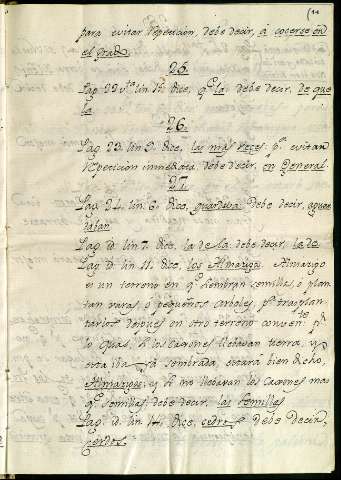 para evitar repeticion, debe decir, á cocerse en
el prado.
25.
Pag. 22 vta lin. 15. dice, qe la debe decir, de que
la
26.
Pag. 23. lin. 9. dice, las mas veces. pa. evitar
repeticion inmediata debe decir, en General.
27.
Pag. 24. lin. 6. dice, guardaba debe decir, aguar
daban
Pag. id. lin. 7. dice, la de la debe decir, la de
Pag. id. lin. 11. dice, los Almaciga. Almacigo
es un terreno en qe. siembran semillas, ó plan
tan varas, ó pequeños arboles, pa. trasplan
tarlos despues en otro terreno convente. pr.
lo qual, si los cajones llebaban tierra, y
esta iba sembrada, estará bien dicho,
Almacigos; y si no llebaban los cajones mas
qe. semillas, debe decir, las semillas
Pag. id. lin. 14. dice, debe decir,
cerdos.